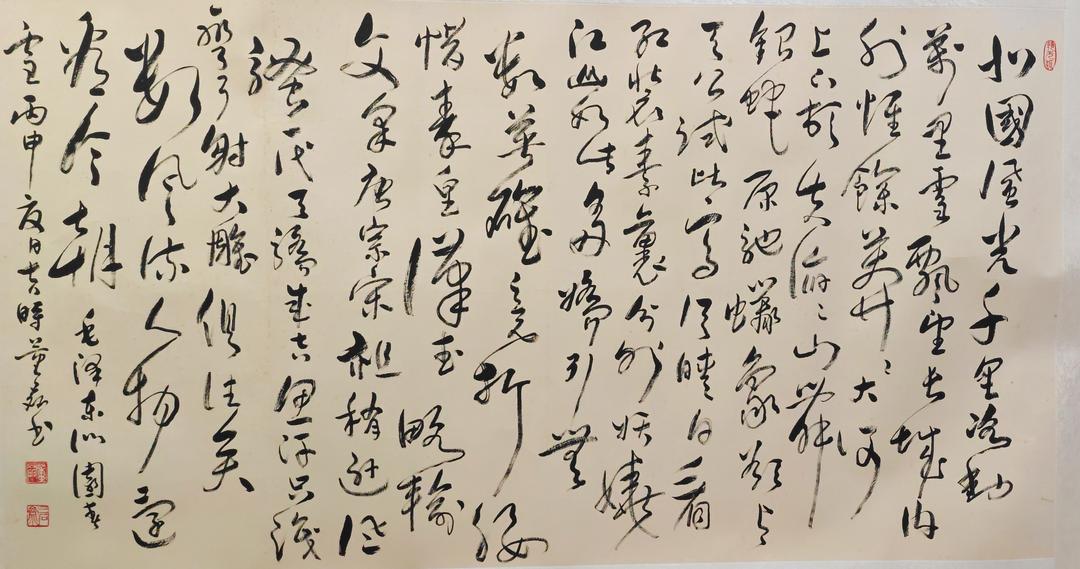 北國風光千里冰封
萬里雪飄望長城內
外惟餘莽莽大河
上下頓失滔滔山舞
銀蛇原馳蠟象欲與
天公試比高須晴日看
紅妝素裹分外妖嬈
江山如此多嬌引無
數英雄競折腰
惜秦皇漢武略輸
文采唐宗宋祖稍遜風
騷一代天驕成吉思汗只識
彎弓射大雕俱往矣
數風流人物還
看今朝 毛澤東沁園春
雪丙申夏日吉時董書